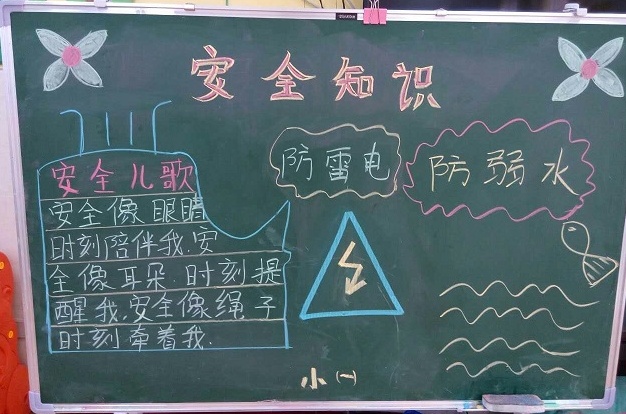 安全知识
安全儿歌
安全像眼睛
时刻陪伴我.安
全像耳朵.时刻提
醒我.安全像绳子
时刻牵着我.
防雷电
防弱水
小(一)